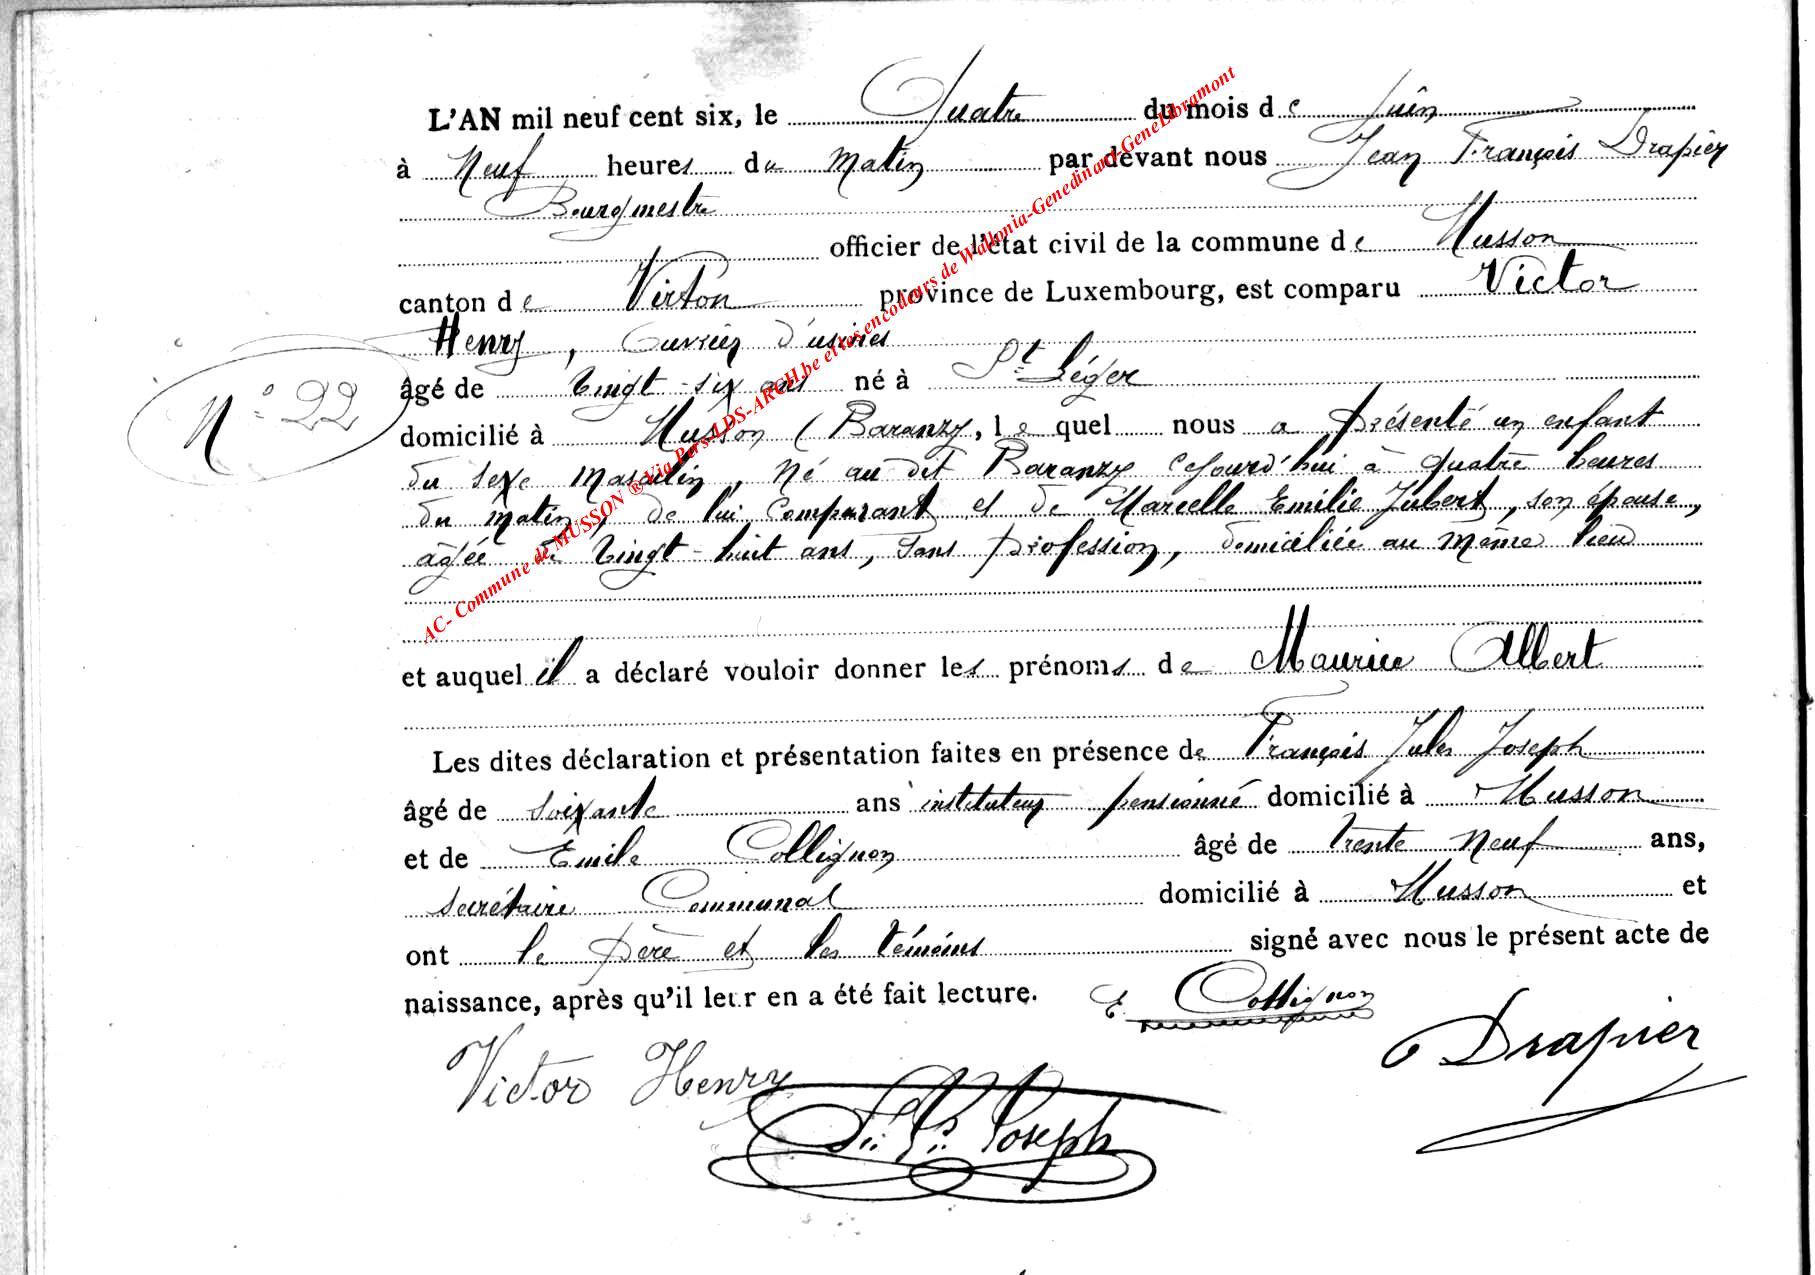 L'AN mil neuf cent six, le Quatre du mois de Juin
à Neuf heures du Matin par devant nous Jean François Drapier
Bourgmestre
officier de l'état civil de la commune de Musson
canton de Virton province de Luxembourg, est comparu Victor
Henry, Ouvrier d'usines
âgé de Vingt-six ans né à St Léger
N° 22
domicilié à Musson (Baranzy, lequel nous a présenté un enfant
du sexe masculin, né au dit Baranzy cejourd'hui à quatre heures
du matin, de lui comparant et de Marcelle Emilie Jubert, son épouse,
âgée de Vingt-huit ans, sans profession, domiciliée au même lieu
et auquel il a déclaré vouloir donner les prénoms de Maurice Albert
Les dites déclaration et présentation faites en présence de François Jules Joseph
âgé de soixante ans instituteur pensionné domicilié à Musson
et de Emile Collignon âgé de trente neuf ans,
secrétaire Communal domicilié à Musson et
ont le père et les témoins signé avec nous le présent acte de
naissance, après qu'il leur en a été fait lecture. E Collignon
Drapier
Victor Henry
Joseph
AC- Commune de MUSSON ® Via Pers-LDS-ARCH.be et les encodeurs de Wallonia-Genedinant-GeneLibramont